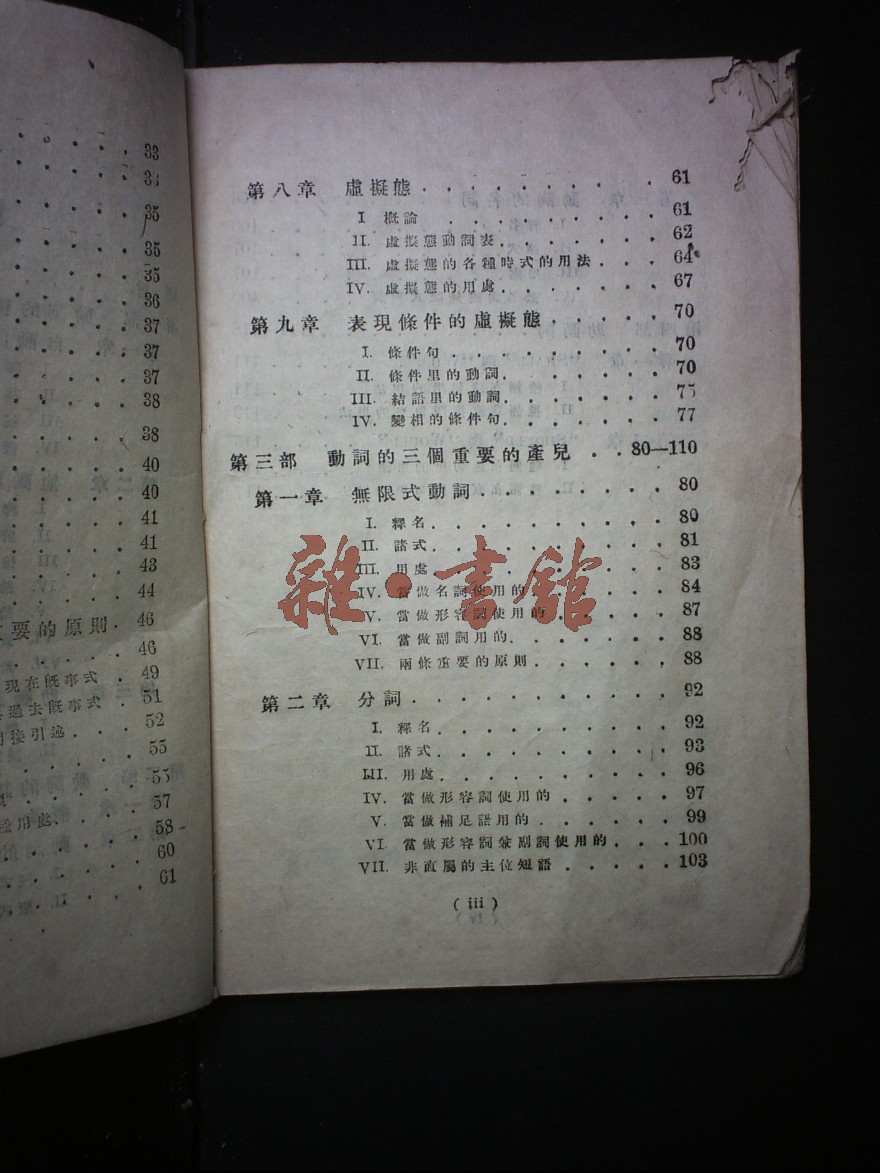 33
35
35
35
36
37
37
37
38
38
40
40
41
41
43
44
要的原則 . 46
46
現在既事式 . 49
過去既事式 . 51
接引述 . . . 52
55
55
57
用處 . . . . 58
60
61
第八章 虛擬態 . . . . . . . . . 61
I 概論 . . . . . . . . . 61
II. 虛擬態動詞表 . . . . . . . 62
III. 虛擬態的各種時式的用法 . . . 64
IV. 虛擬態的用處 . . . . . . . 67
第九章 表現條件的虛擬態 . . . . . 70
I. 條件句 . . . . . . . . . 70
II. 條件里的動詞 . . . . . . . 70
III. 結語里的動詞 . . . . . . . 75
IV. 變相的條件句 . . . . . . . 77
第三部 動詞的三個重要的產兒 . . 80—110
第一章 無限式動詞 . . . . . . . 80
I. 釋名 . . . . . . . . . 80
II. 諸式 . . . . . . . . . 81
III. 用處 . . . . . . . . . 83
IV. 當做名詞使用的 . . . . . . 84
V. 當做形容詞使用的 . . . . . 87
VI. 當做副詞用的 . . . . . . . 88
VII. 兩條重要的原則 . . . . . . 88
第二章 分詞 . . . . . . . . . . 92
I. 釋名 . . . . . . . . . 92
II. 諸式 . . . . . . . . . 93
III. 用處 . . . . . . . . . 96
IV. 當做形容詞使用的 . . . . . 97
V. 當做補足語用的 . . . . . . 99
VI. 當做形容詞兼副詞使用的 . . . 100
VII. 非直屬的主位短語 . . . . . 103
( iii )
雜·書館